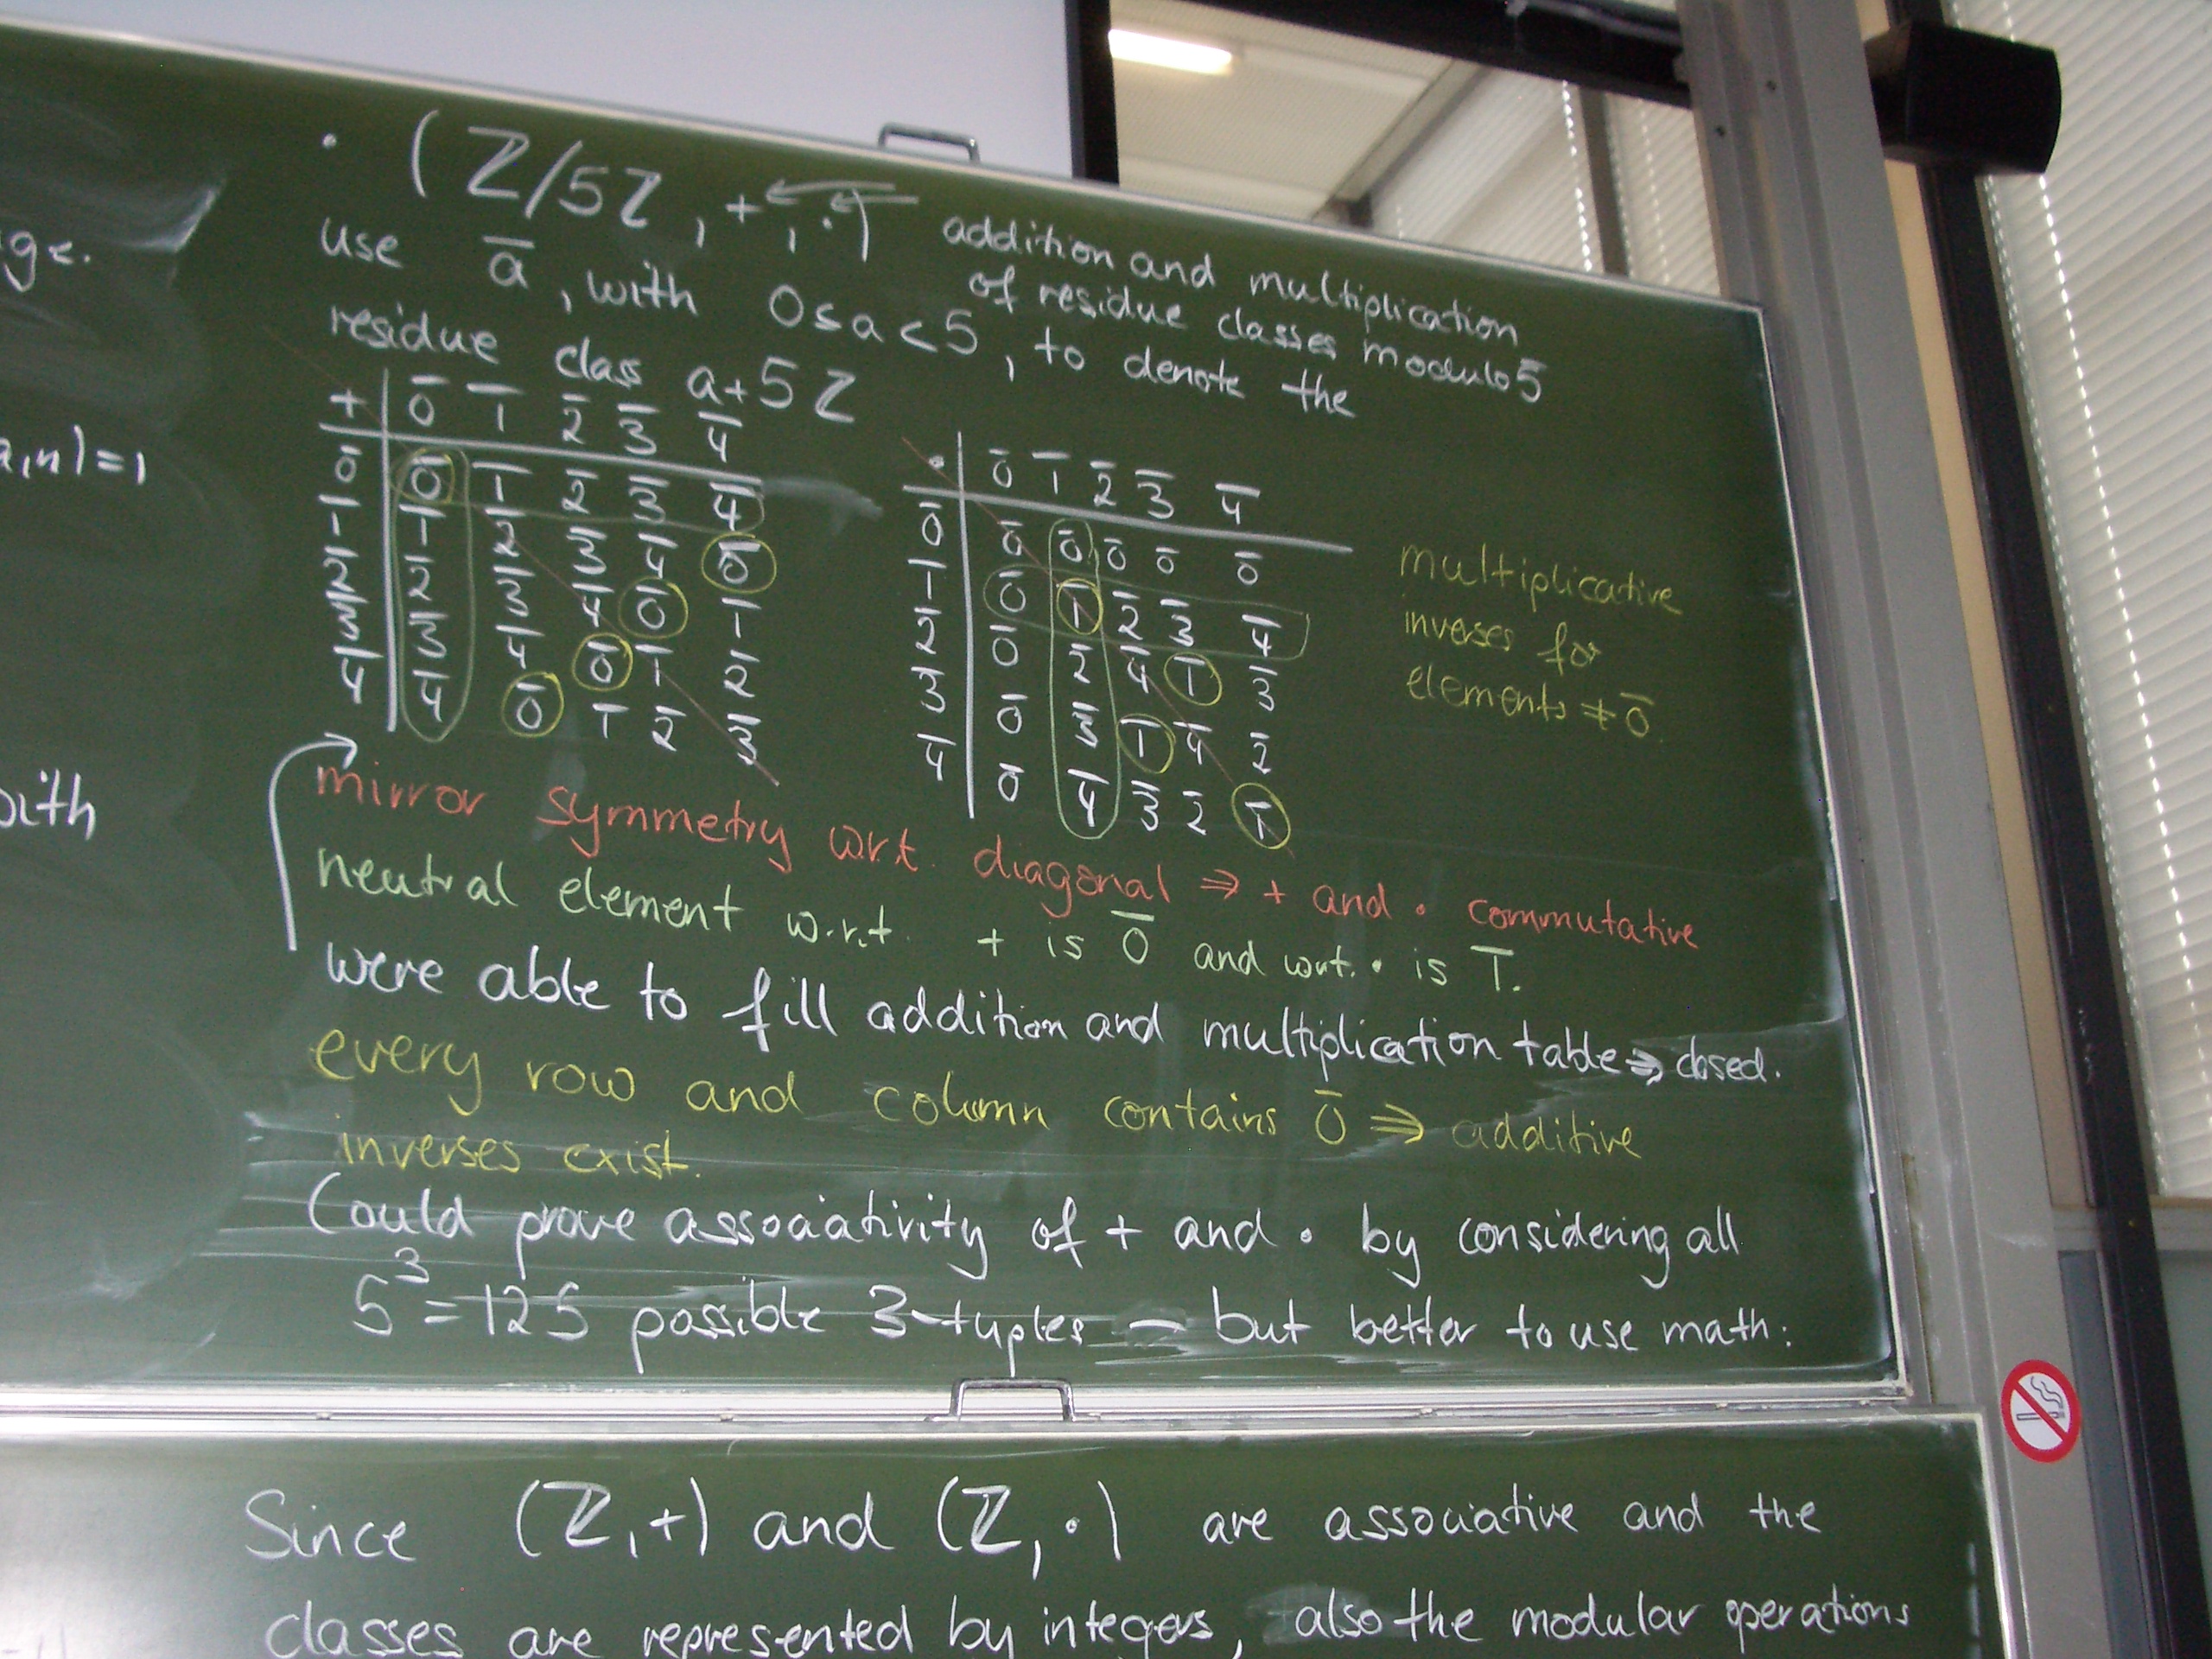 ge.
a,n)=1
with
· (Z/5Z, +, ·)
addition and multiplication
of residue classes modulo 5
use a̅, with 0≤a<5, to denote the
residue class a+5Z
+ | 0̅ 1̅ 2̅ 3̅ 4̅
0̅ | 0̅ 1̅ 2̅ 3̅ 4̅
1̅ | 1̅ 2̅ 3̅ 4̅ 0̅
2̅ | 2̅ 3̅ 4̅ 0̅ 1̅
3̅ | 3̅ 4̅ 0̅ 1̅ 2̅
4̅ | 4̅ 0̅ 1̅ 2̅ 3̅
· | 0̅ 1̅ 2̅ 3̅ 4̅
0̅ | 0̅ 0̅ 0̅ 0̅ 0̅
1̅ | 0̅ 1̅ 2̅ 3̅ 4̅
2̅ | 0̅ 2̅ 4̅ 1̅ 3̅
3̅ | 0̅ 3̅ 1̅ 4̅ 2̅
4̅ | 0̅ 4̅ 3̅ 2̅ 1̅
multiplicative
inverses for
elements ≠ 0̅
mirror symmetry w.r.t. diagonal ⇒ + and · commutative
neutral element w.r.t. + is 0̅ and w.r.t. · is 1̅.
were able to fill addition and multiplication table ⇒ closed.
every row and column contains 0̅ ⇒ additive
inverses exist.
Could prove associativity of + and · by considering all
5³=125 possible 3-tuples – but better to use math:
Since (Z,+) and (Z,·) are associative and the
classes are represented by integers, also the modular operations